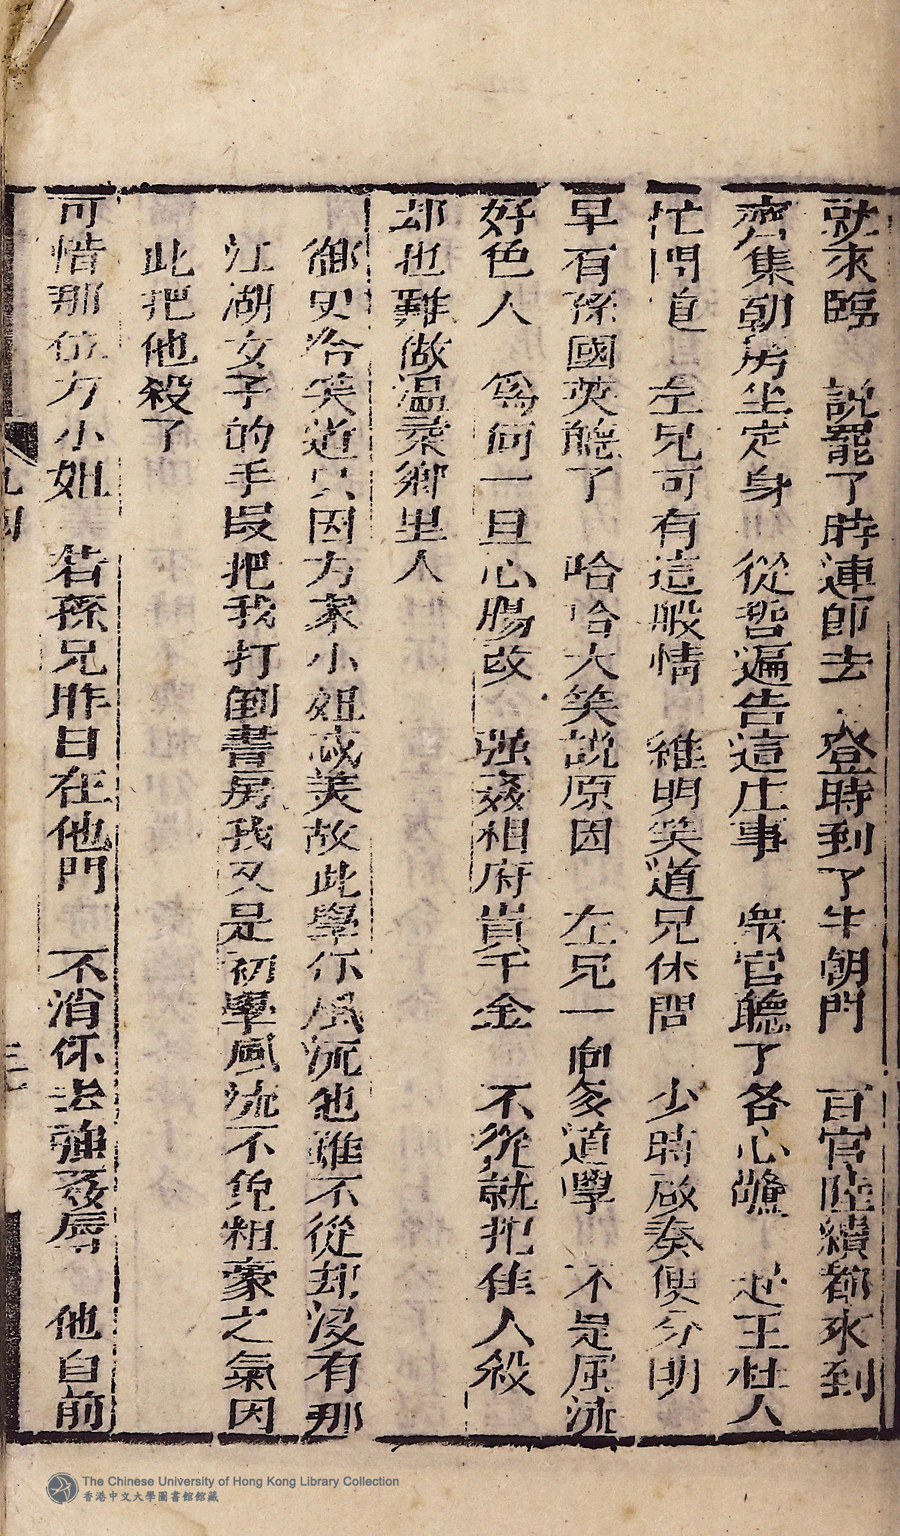 就來臨　說罷了時連節去　登時到了牛朝門　百官陸續都來到
齊集朝房坐定身　從哲遍告這庄事　衆官聽了各心驚　起王杜人
忙問道　左兄可有這般情　維明笑道兄休問　少時啟奏便分明
早有孫國英聽了　哈哈大笑說原因　左兄一向多道學　不是風流
好色人　爲何一旦心腸改　强姦相府貴千金　不從就把佳人殺
却也難做溫柔鄉里人
御史冷笑道只因方家小姐成美故此學你風流他雖不從却沒有那
江湖女子的手段把我打倒書房我又是初學風流不免粗豪之氣因
此把他殺了
可惜那位方小姐　若孫兄昨日在他門　不消你去強姦辱　他自前
九回
The Chinese University of Hong Kong Library Collection
香港中文大學圖書館館藏